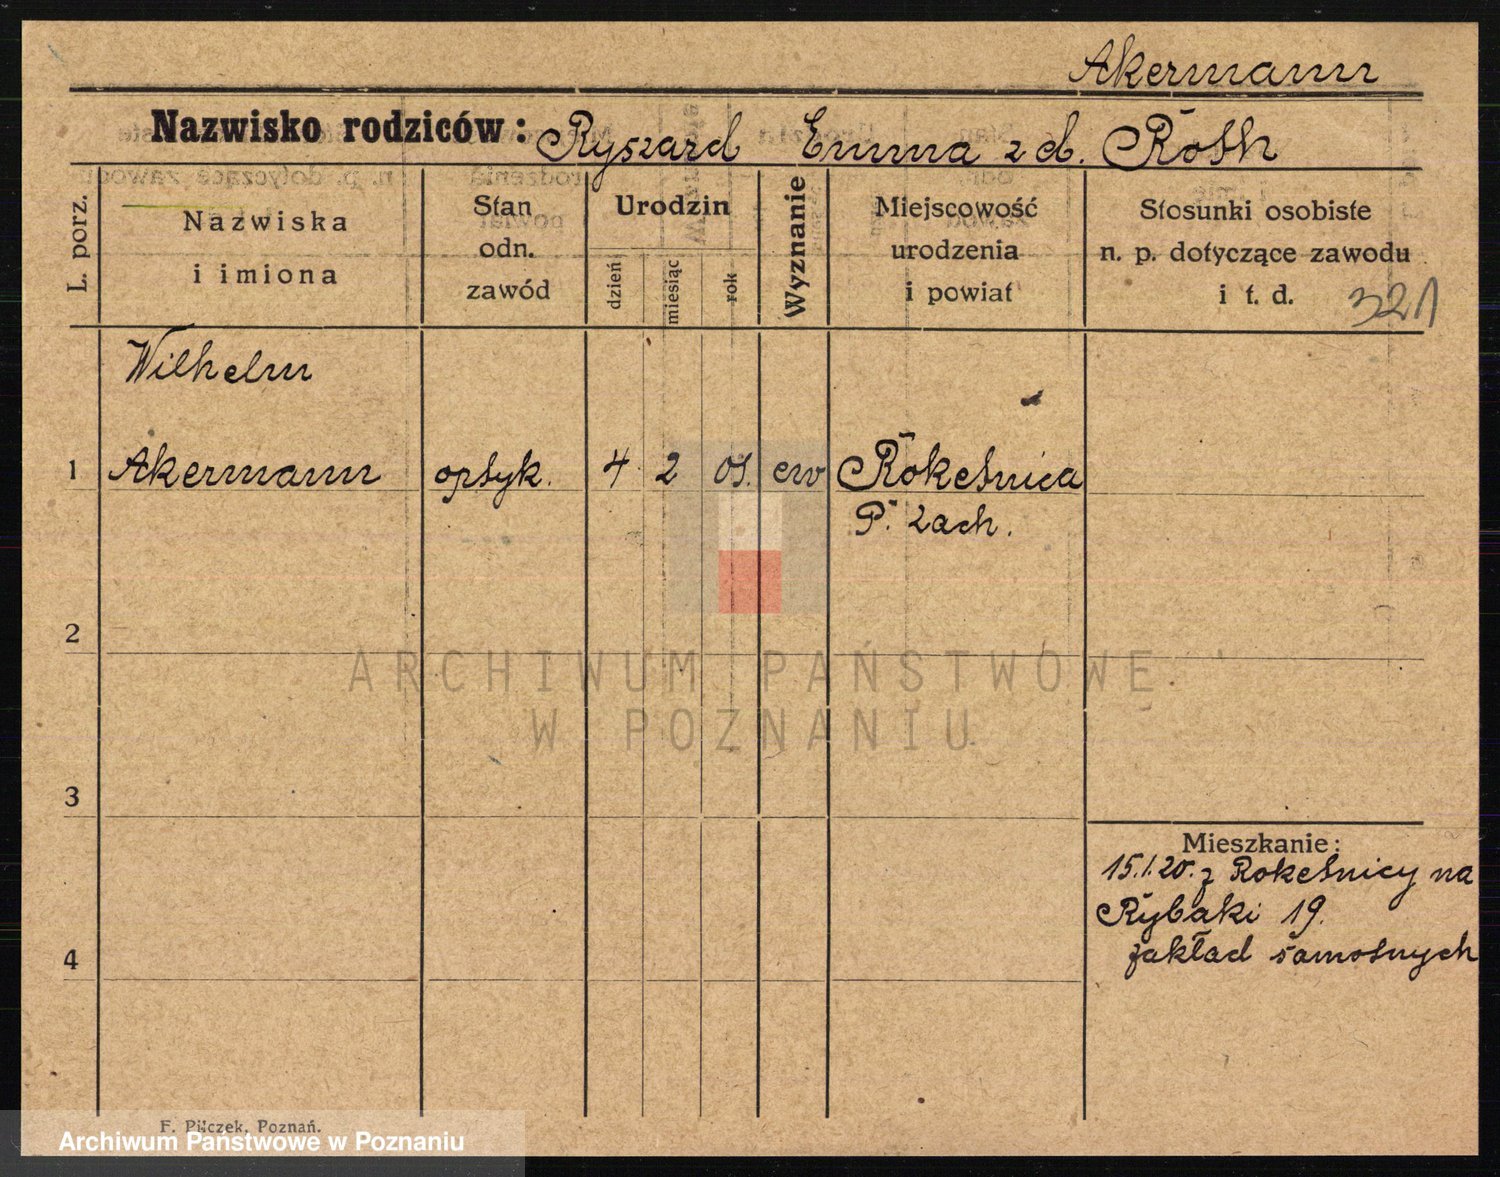 Akermann
Nazwisko rodziców: Ryszard Emma z d. Roth
L. porz.
Nazwiska
i imiona
Stan
odn.
zawód
Urodzin
dzień
miesiąc
rok
Wyznanie
Miejscowość
urodzenia
i powiat
Stosunki osobiste
n. p. dotyczące zawodu
i t. d.
321
Wilhelm
1 Akermann optyk. 4. 2 01. ew Roketnica
P. zach.
2
3
4
Mieszkanie:
15.1.20. z Roketnicy na
Rybaki 19.
zakład samotnych
ARCHIWUM PAŃSTWOWE
W POZNANIU
F. Pilczek, Poznań.
Archiwum Państwowe w Poznaniu